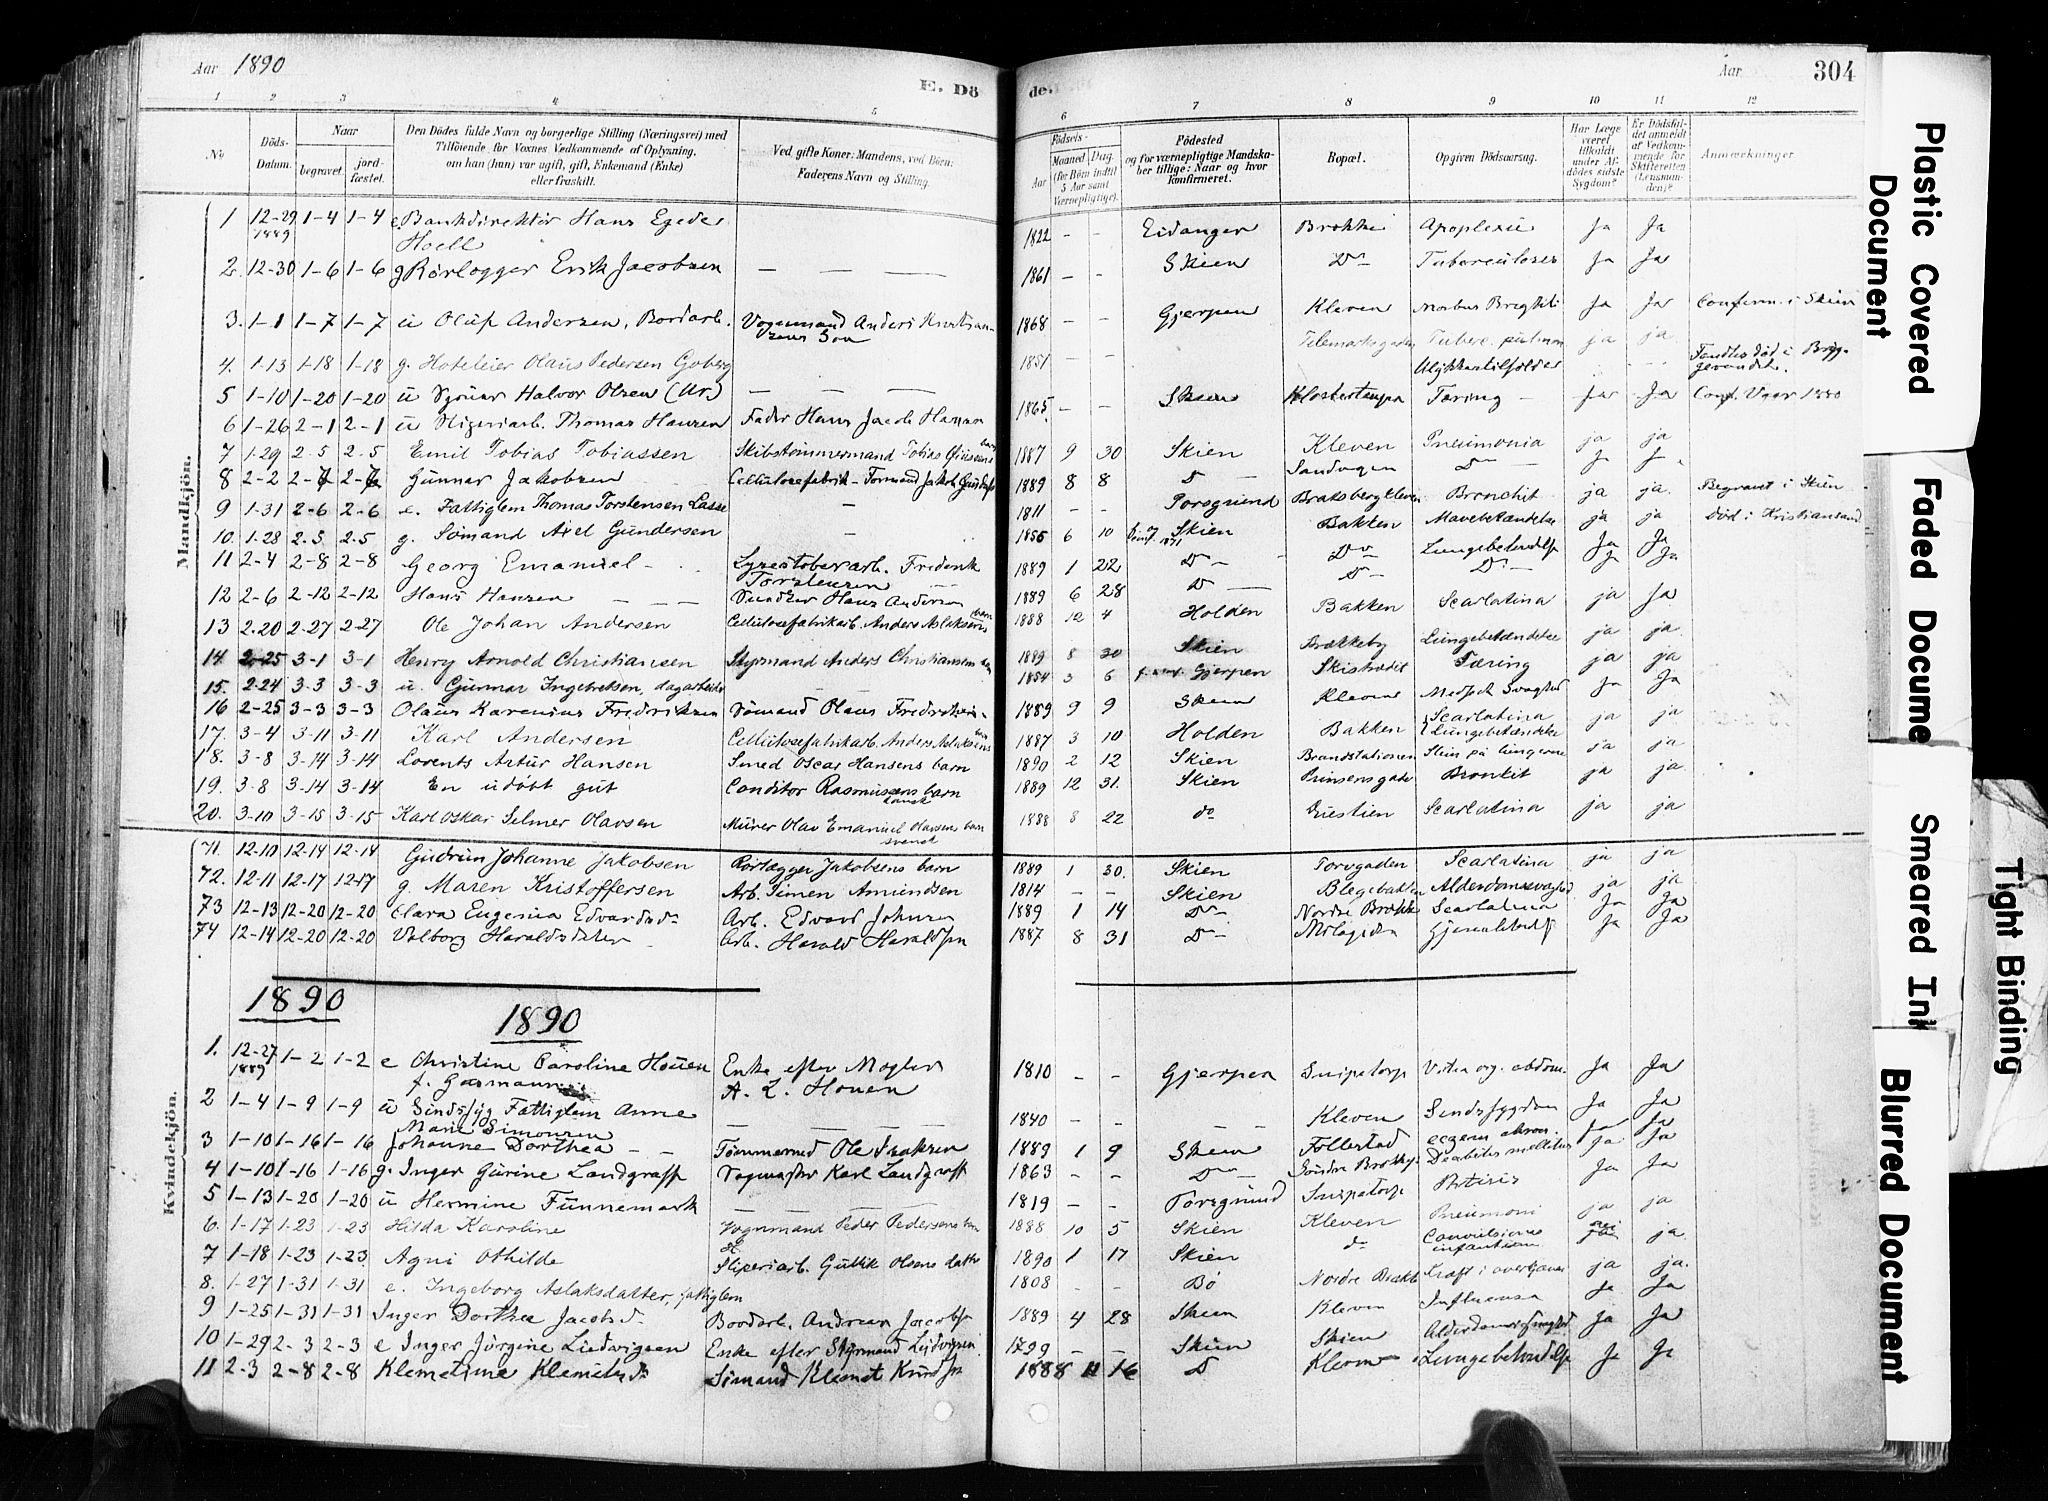 Aar 1890
E. Dö
de.
Aar
304
1 2 3 4 5 6 7 8 9 10 11 12
No
Döds-Datum.
Naar
begravet.
jord-fæstet.
Den Dödes fulde Navn og borgerlige Stilling (Næringsvei) med
Tilföiende for Voxnes Vedkommende af Oplysning,
om han (hun) var ugift, gift, Enkemand (Enke)
eller fraskilt.
Ved gifte Koner: Mandens, ved Börn:
Faderens Navn og Stilling.
Födsels-
Aar
Maaned
Dag.
(for Börn indtil
5 Aar samt
Værnepligtige).
Födested
og for værnepligtige Mandska-
ber tillige: Naar og hvor
konfirmeret.
Bopæl.
Opgiven Dödsaarsag.
Har Læge
været
tilkaldt
under Af-
dödes sidste
Sygdom?
Er Dödsfal-
det anmeldt
af Vedkom-
mende for
Skifteretten
(Lensman-
den)?
Anmærkninger
Mandkjön.
1 12-29 1889 1-4 1-4 e Bankdirektör Hans Egede Hoell 1822 - - Eidanger Brekke Apoplexie Ja Ja
2. 12-30 1-6 1-6 g Rörlægger Erik Jacobsen — — — 1861 - - Skien Do Tuberculoses Ja Ja
3. 1-1 1-7 1-7 u Oluf Andersen, Bordarb. Vognmand Anders Kristian- sens Søn 1868 - - Gjerpen Kleven Morbus Brightii Ja Ja Confirm. i Skien
4. 1-13 1-18 1-18 g. Hoteleier Olaus Pedersen Goberg 1851 Telemarksgaden ja ja
Ulykkestilfælde Fandtes død i
5 1-10 1-20 1-20 u Halvor Olsen — — — 1865 - - Skien Tæring - Ja Ja 1880
6 1-26 2-1 2-1 u Thomas Hansen Fader Hans Jacob Hansen
7 1-29 2-5 2-5 Emil Tobias Tobiassen Skibstømmermand Tobias barn 1887 9 30 Skien Kleven Pneumonia ja ja
8 2-2 Gunnar Jakobsen Cellulosefabrik-Formand Jakob 1889 8 8 D — Sandvegen D — J J
9 1-31 2-6 2-6 e. Fattiglem Thomas Torstensen Lasse - 1811 - - Porsgrund Bratsbergkleven Bronchit ja ja. Begravet i Skien
10. 1-28 2-5 2-5 g. Sømand Axel Gundersen - 1855 6 10 1871 Skien Bakken Mavebetændelse ja ja Død i Kristiansand
11 2-4 2-8 2-8 Georg Emanuel - arb. Fredrik Torstensen 1889 1 22 Do - Do Lungebetændelse Ja Ja
12 2-6 2-12 2-12 Hans Hansen — — Snedker Hans Andersen 1889 6 28 D — D - D - Ja Ja
13 2-20 2-27 2-27 Ole Johan Andersen Cellulosefabrikarb. Anders Aslaksens barn 1888 12 4 Holden Bakken Scarlatina ja Ja
14 2-25 3-1 3-1 Henry Arnold Christiansen Styrmand Anders Christiansens barn 1889 8 30 Skien Brækkeby Lungebetændelse ja ja
15. 2-24 3-3 3-3 u. Gunnar Ingebretsen, dagarbeider 1854 3 6 Gjerpen Skistredet Tæring ja ja
16 2-25 3-3 3-3 Olaus Karenius Fredriksen Sömand Olaus Fredriksen 1889 9 9 Skien Kleven Medfødt Svaghed Ja Ja
17. 3-4 3-11 3-11 Karl Andersen Cellulosefabrikarb. Anders Aslaksens barn 1887 3 10 Holden Bakken Scarlatina Lungebetændelse ja ja
18. 3-8 3-14 3-14 Lorents Artur Hansen Smed Oscar Hansens barn 1890 2 12 Skien Brandstationen Slim på lungerne ja ja
19. 3-8 3-14 3-14 En udöbt gut Conditor Rasmussens barn dansk 1889 12 31. Skien Prinsensgade Bronkit ja ja
20. 3-10 3-15 3-15 Karl Oskar Selmer Olavsen Murer Olav Emanuel Olavsens barn svensk 1888 8 22 do Scarlatina ja ja
71. 12-10 12-14 12-14 Gudrun Johanne Jakobsen Rörlægger Jakobsens barn 1889 1 30. Skien Torvgaden Scarlatina ja ja
72. 12-11 12-17 12-17 g. Maren Kristoffersen Arb. Simen Amundsen 1814 - - Skien Blegebakken Alderdomssvaghed ja ja
73 12-13 12-20 12-20 Clara Eugenia Edvardsdr Arb. Edvard Johnsen 1889 1 14 Do Nordre Brekke Scarlatina Ja Ja
74 12-14 12-20 12-20 Valborg Haraldsdatter Arb. Harald Haraldsen 1887 8 31 D - Ja Ja
1890
1890
Kvindekjön.
1. 12-27 1889 1-2 1-2 e Christine Caroline Houen f. Gasmann Enke efter Mægler A. L. Houen 1810 - - Gjerpen Snipetorp org. abdom. Ja Ja
2 1-4 1-9 1-9 u Sindssyg Fattiglem Anne Marie Simonsen — — — 1840 - - — Kleven Sindssygdom Ja Ja
3 1-10 1-16 1-16 Johanne Dorthea - - Tømmermd Ole Isaksen 1889 1 9 Skien Follestad Ja Ja
4 1-10 1-16 1-16 g. Inger Gurine Landgraff Karl Landgraff 1863 - - D — Söndre Brekke Diabetes mellitus ja. Ja
5 1-13 1-20 1-20 u Hermine Funnemark — — — 1819 - - Porsgrund Snipetorp Ja Ja
6. 1-17 1-23 1-23 Hilda Karoline Vognmand Peder Pedersens barn 1888 10 5 Skien Kleven Pneumoni ja ja
7 1-18 1-23 1-23 Agni Othilde Sliperiarb. Guttik Olsens datter 1890 1 17 Skien do Convulsiones infantium nei ja
8. 1-27 1-31 1-31 e. Ingeborg Aslaksdatter, fattiglem 1808 - - Bö Nordre Brekke Kræft i ja ja.
9 1-25 1-31 1-31 Inger Dorthea Jacobsd. Bordarb. Andreas Jacobsen 1889 4 28 Skien Kleven Influensa Ja Ja
10 1-29 2-3 2-3 e Inger Jörgine Ludvigsen Enke efter Styrmand Ludvigsen 1799 - - Skien Skien Alderdomssvaghed Ja Ja
11 2-3 2-8 2-8 Klemetine Klemetsdr Sömand Klemet Knudsen 1888 11 16 D Kleven Lungebetændelse Ja Ja
Plastic Covered Document
Faded Docume
Smeared Ink
Blurred Document
Tight Binding